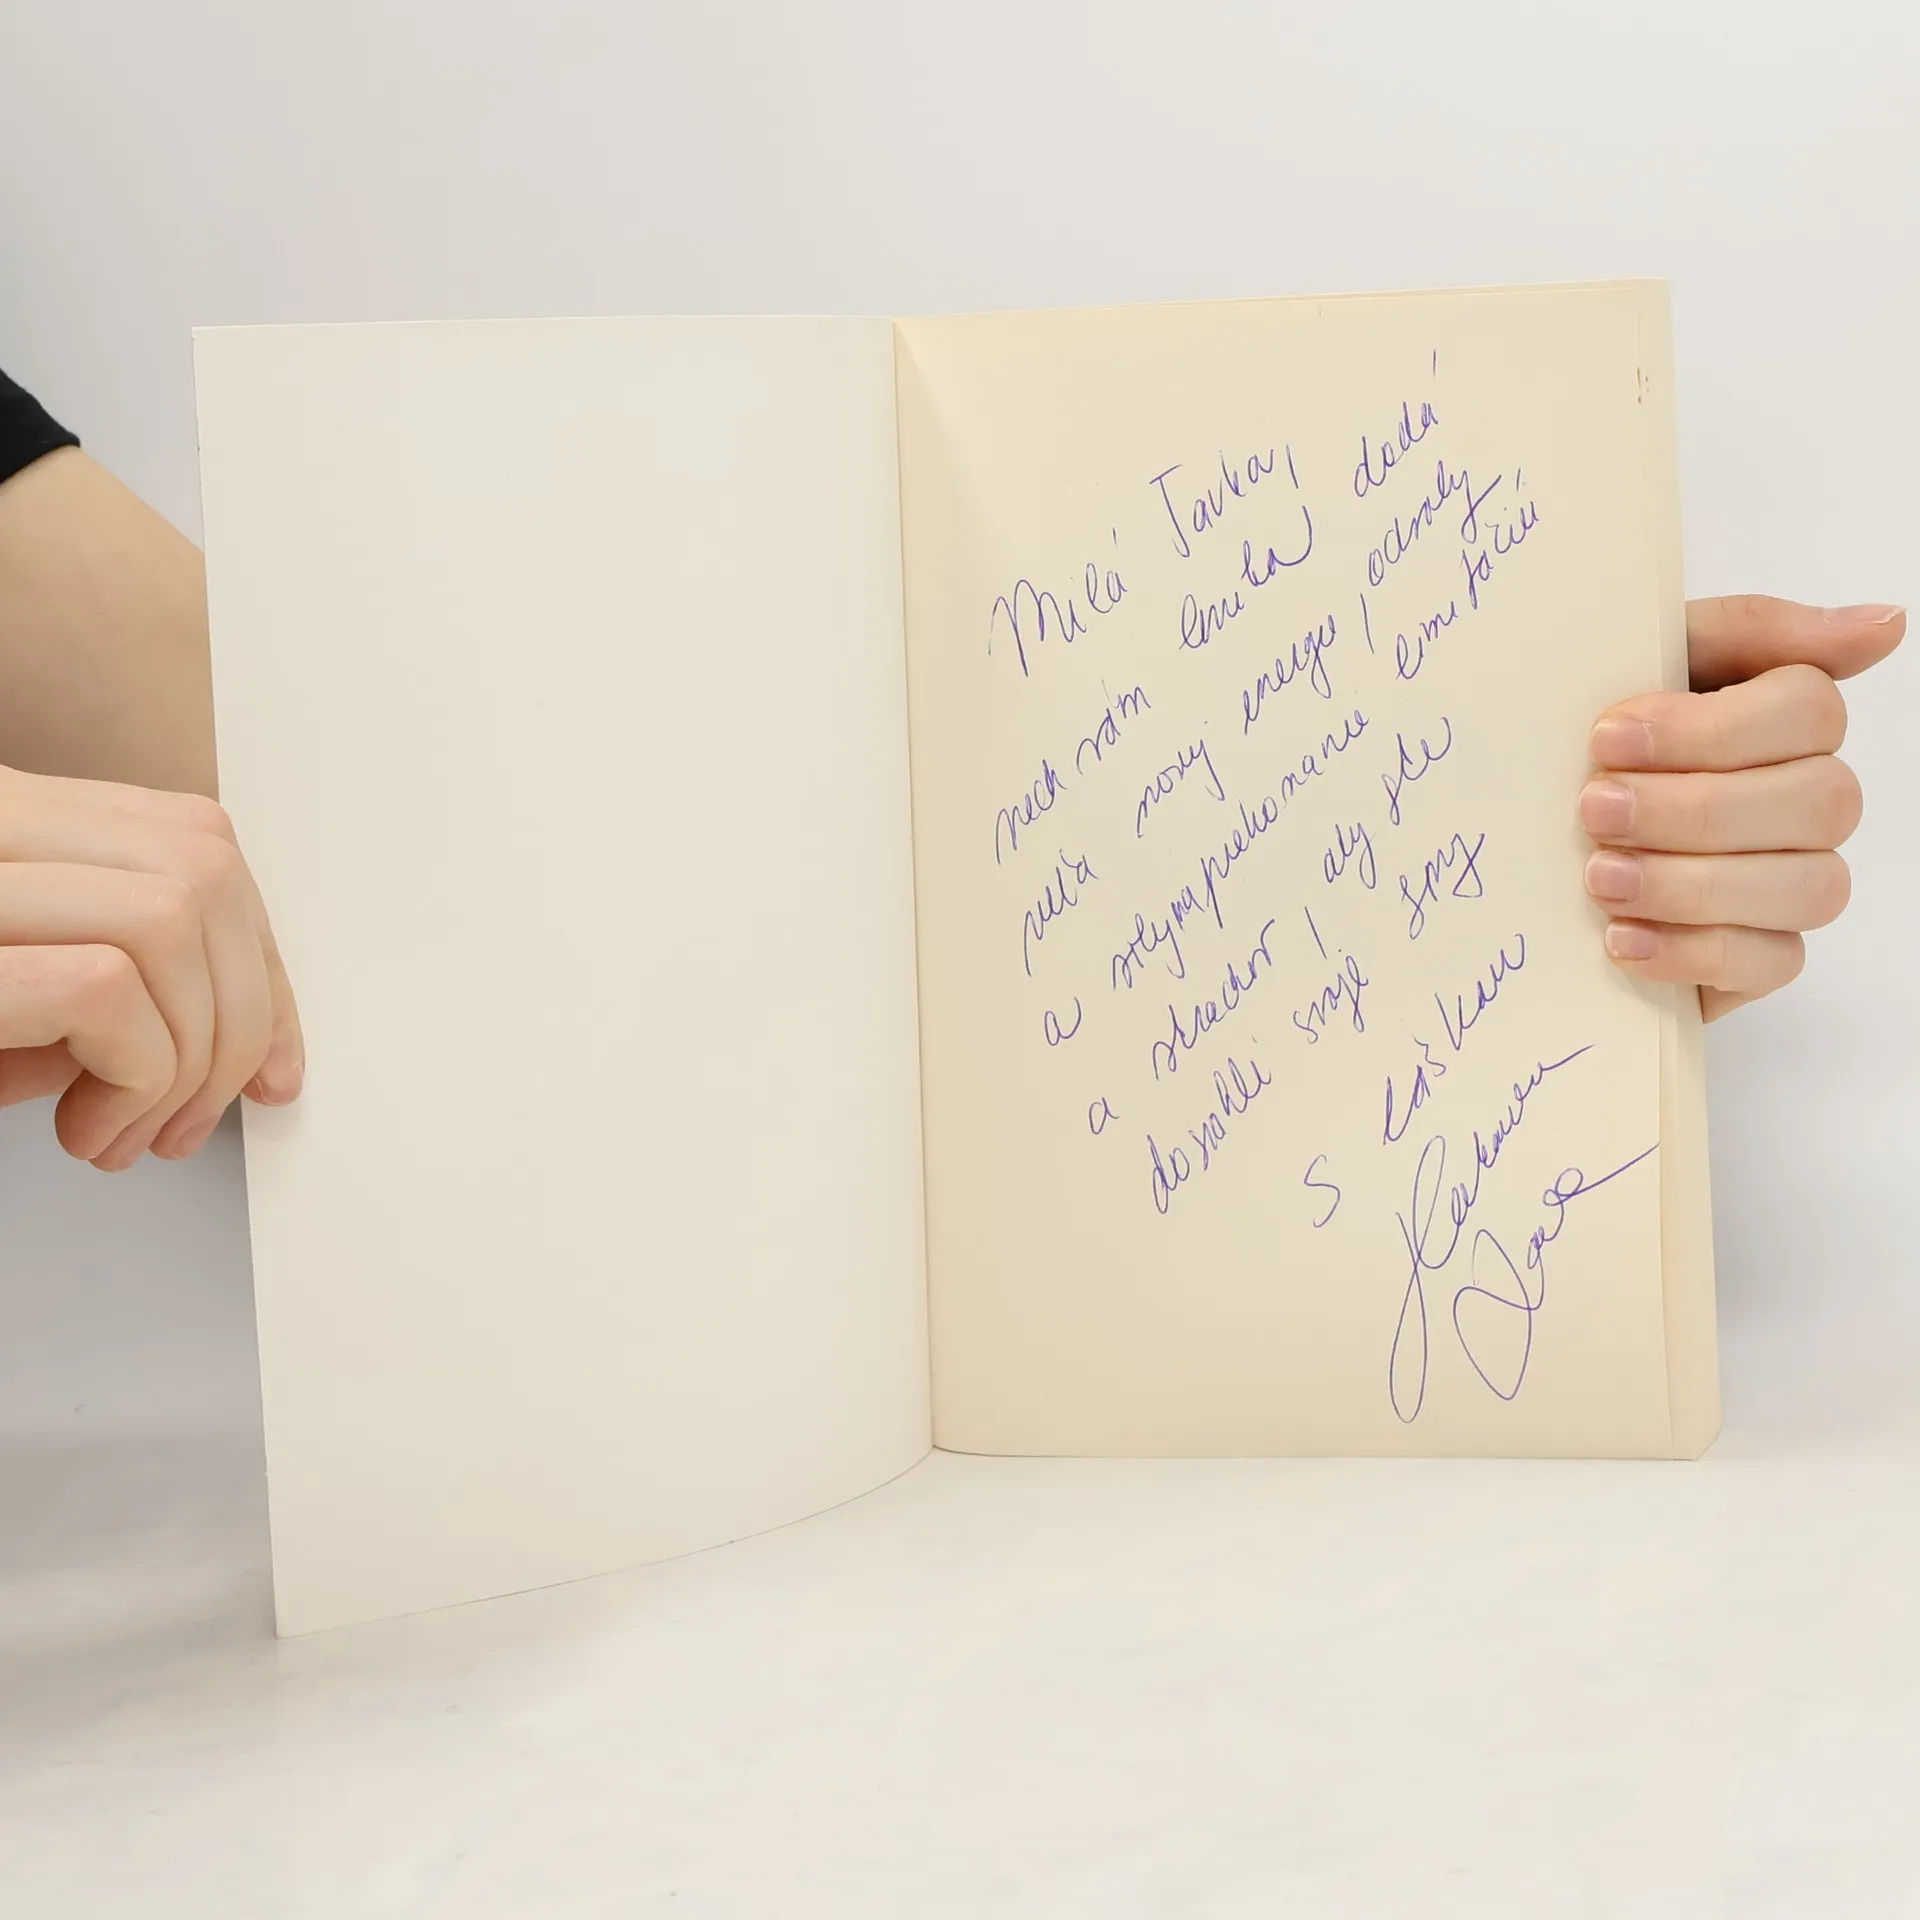 Milá Janka,
nech vám kniha dodá
veľa novej energie, odvahy
a sily na prekonanie limitácií
a strachov, aby ste
dosiahli svoje sny
S láskou